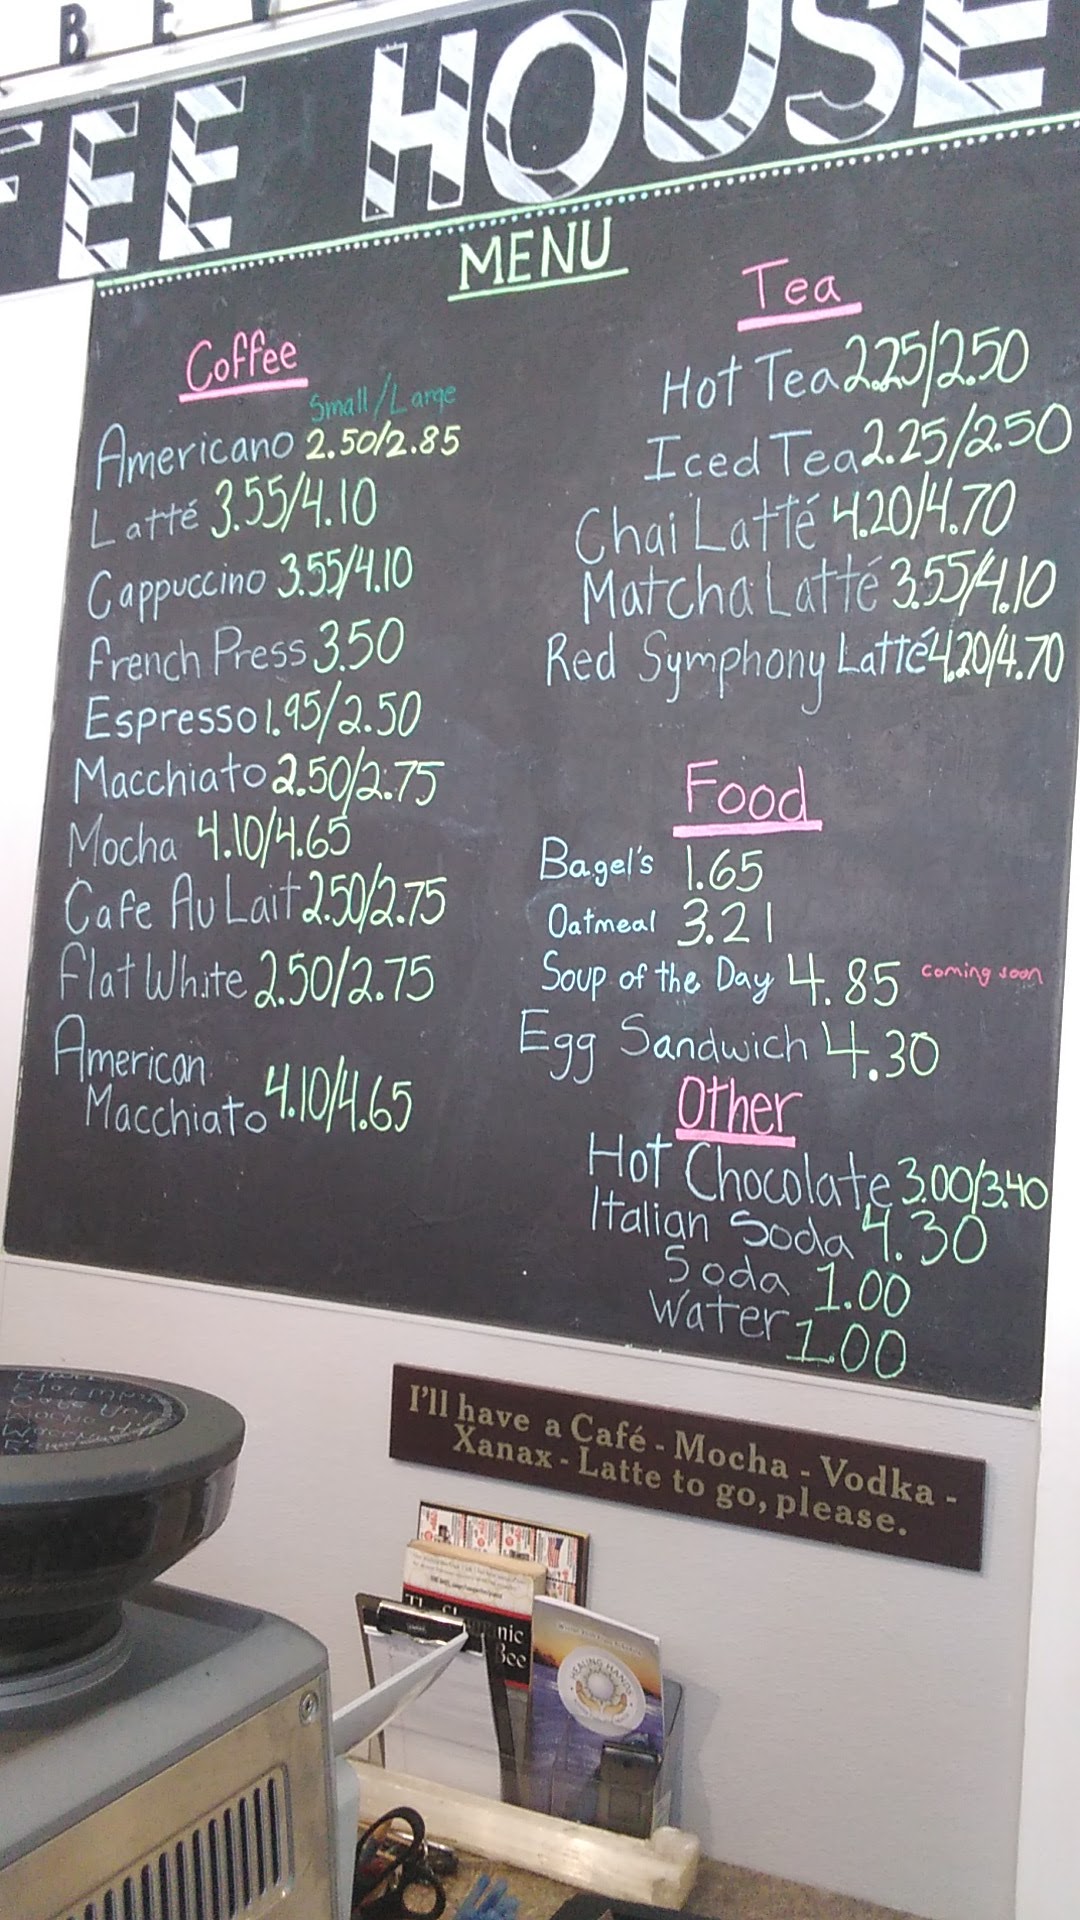 B E
FEE HOUSE
MENU
Coffee
Small/Large
Americano 2.50/2.85
Latté 3.55/4.10
Cappuccino 3.55/4.10
French Press 3.50
Espresso 1.95/2.50
Macchiato 2.50/2.75
Mocha 4.10/4.65
Cafe Au Lait 2.50/2.75
Flat White 2.50/2.75
American
Macchiato 4.10/4.65
Tea
Hot Tea 2.25/2.50
Iced Tea 2.25/2.50
Chai Latté 4.20/4.70
Matcha Latté 3.55/4.10
Red Symphony Latté 4.20/4.70
Food
Bagel's 1.65
Oatmeal 3.21
Soup of the Day 4.85 coming soon
Egg Sandwich 4.30
Other
Hot Chocolate 3.00/3.40
Italian Soda 4.30
Soda 1.00
Water 1.00
I'll have a Café - Mocha - Vodka -
Xanax - Latte to go, please.
Bee
HEALING HANDS